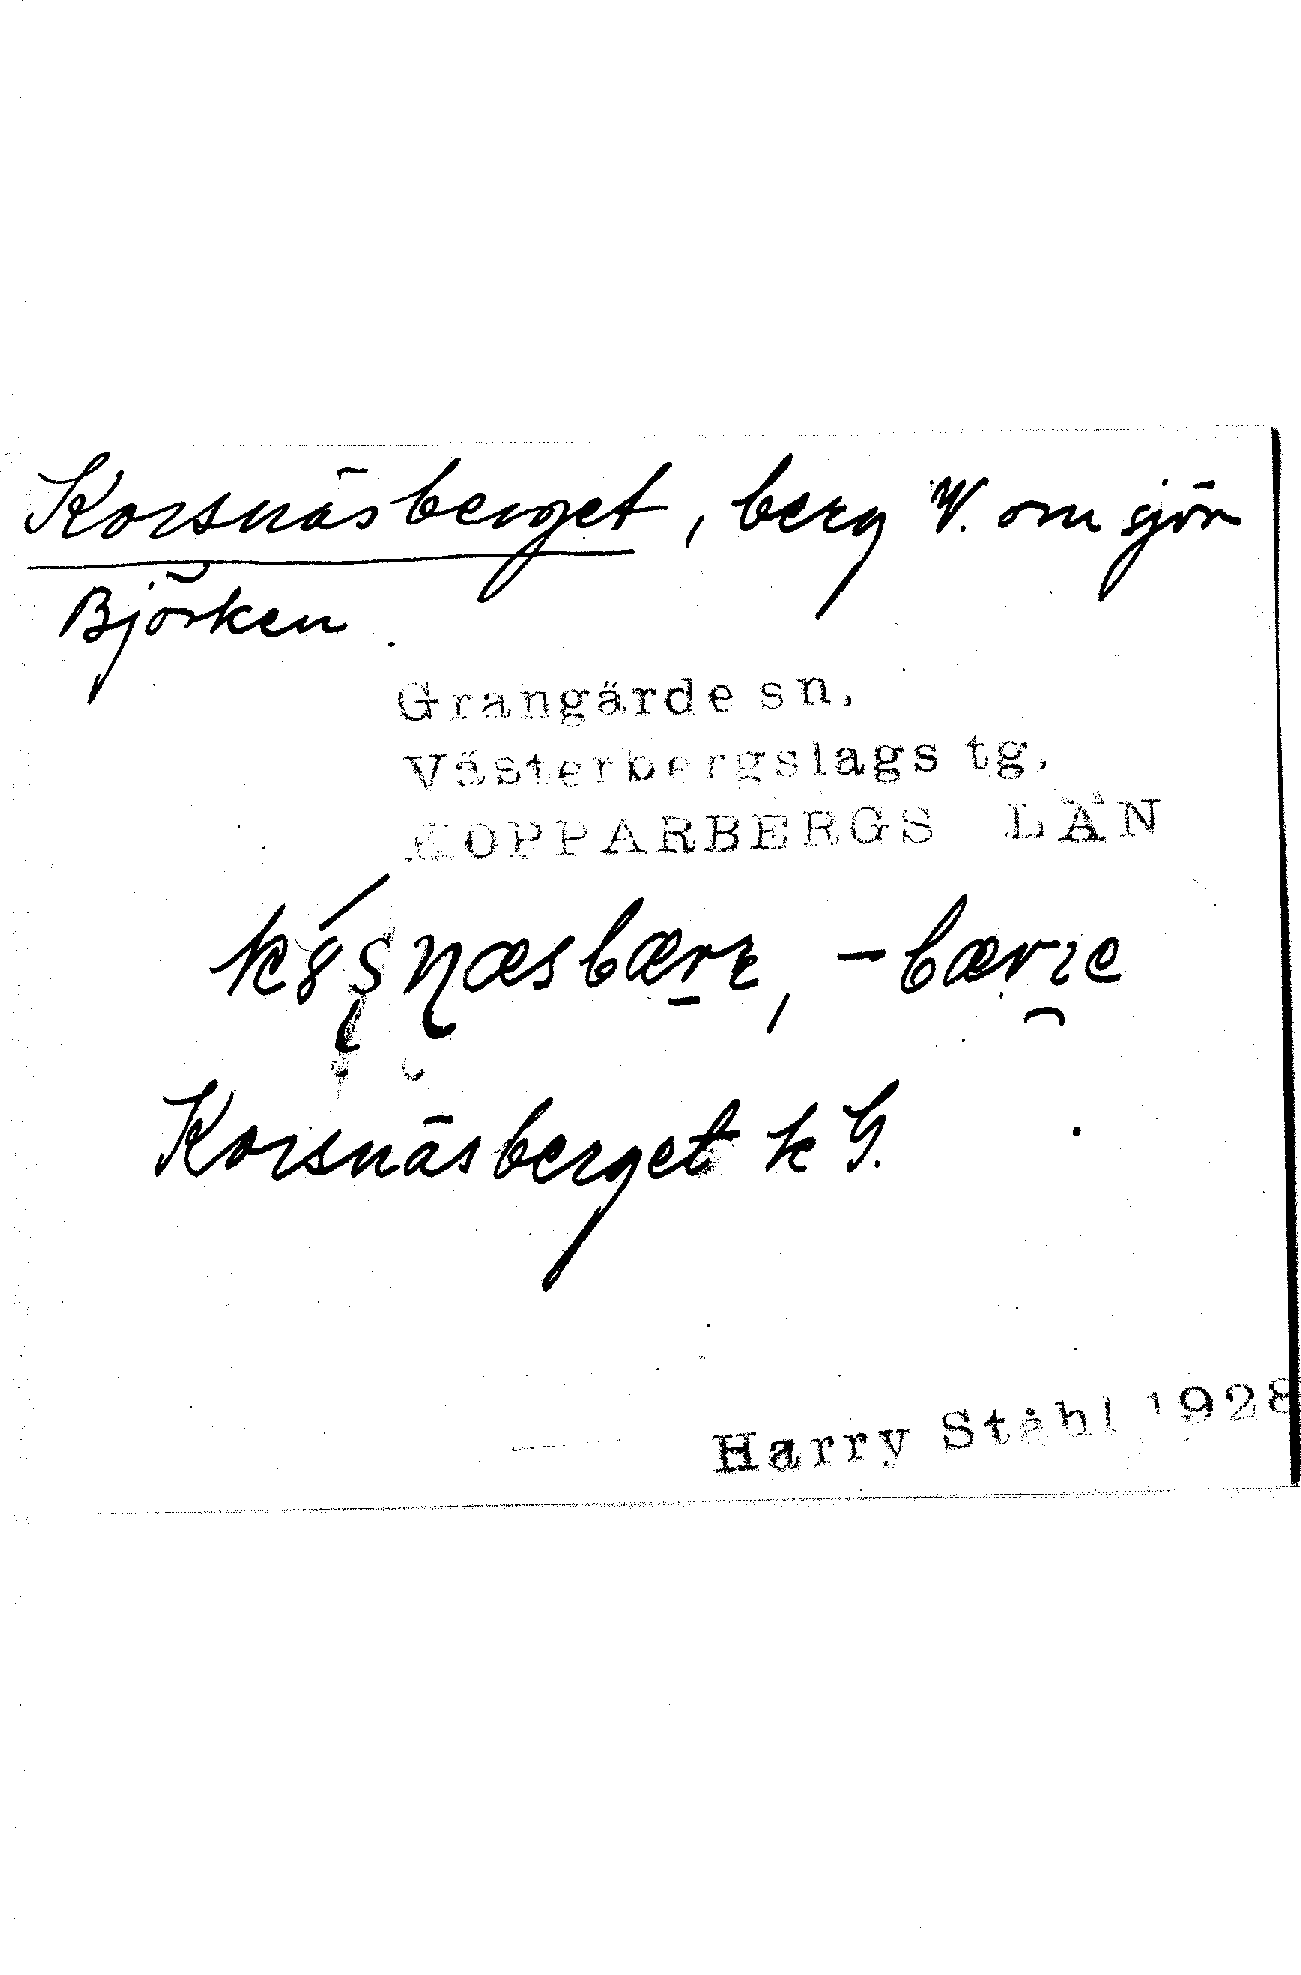 Korsnäsberget, berg V. om sjön
Björken
Grangärde sn,
Västerbergslags tg.
KOPPARBERGS LÄN
Korsnäsberget k G.
Harry Ståhl 1928